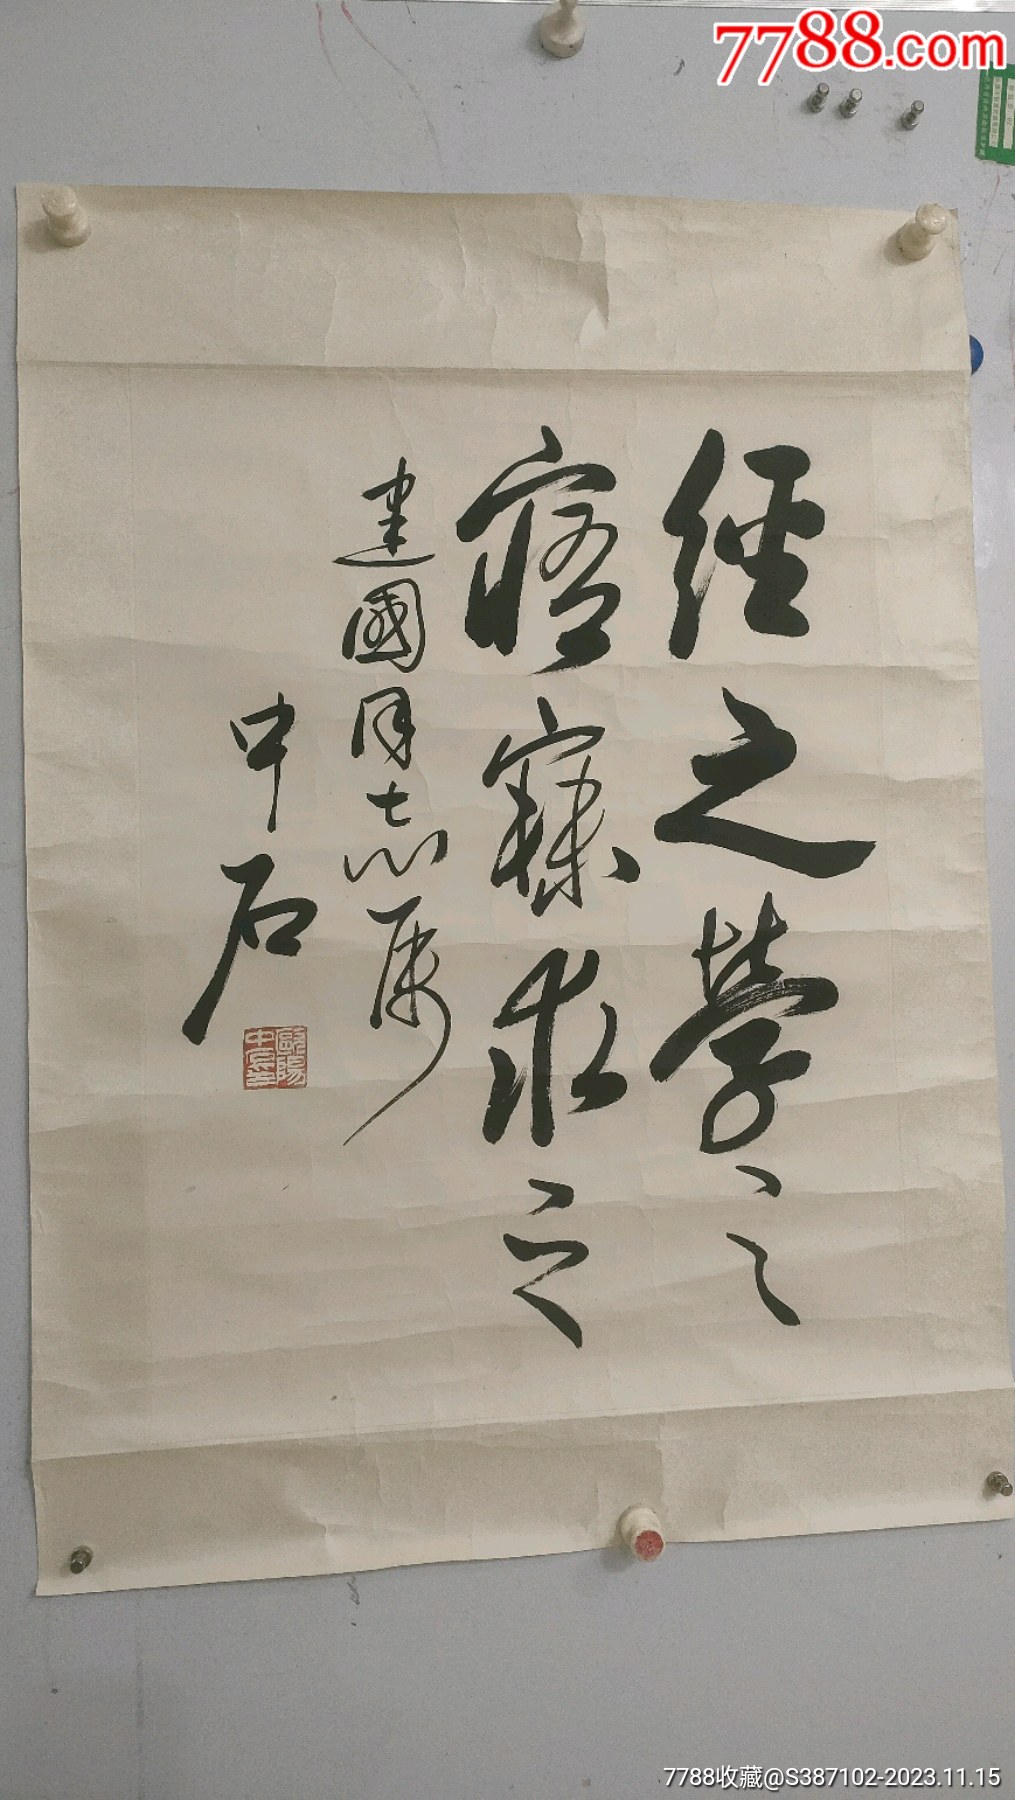 7788.com
經之營之
寤寐求之
建國同志属
中石
歐陽
中石
7788收藏@S387102-2023.11.15